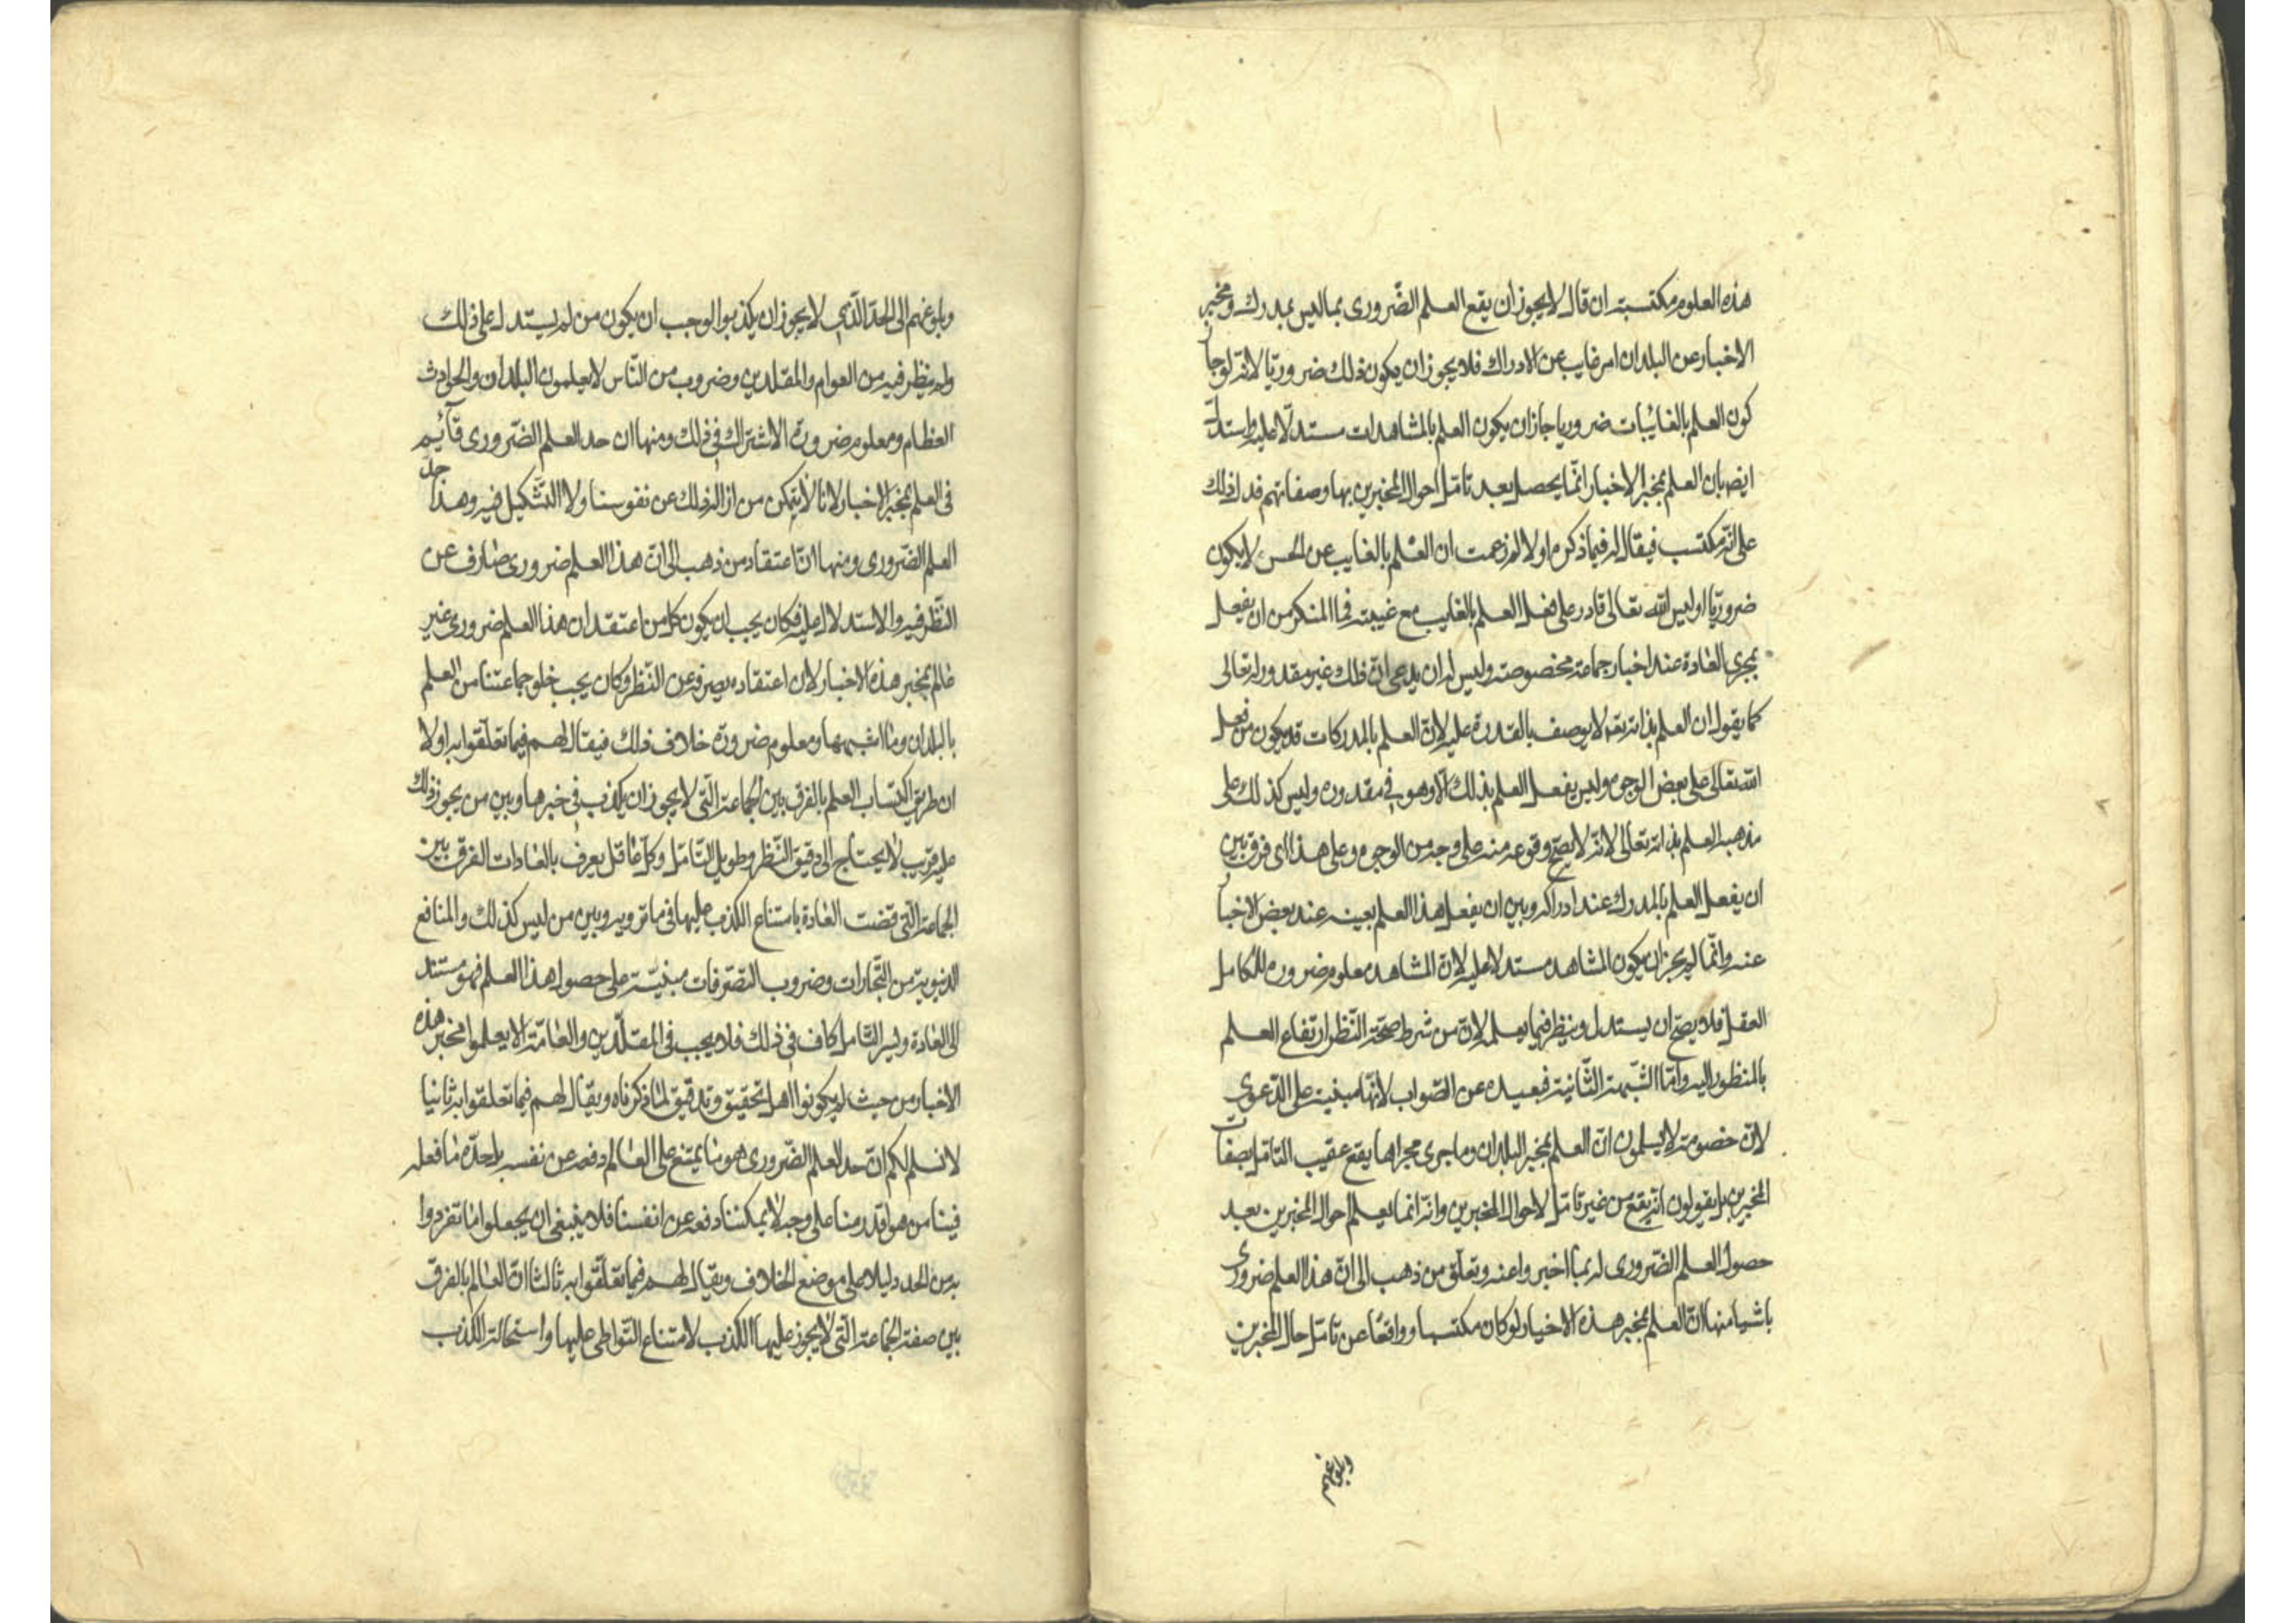 هذه العلوم مكتسبة ان قال لا يجوز ان يقع العلم الضّرورى بما ليس بمدرك ومخبر
الاخبار عن البلدان امر غايب عن الادراك فلا يجوز ان يكون ذلك ضروريّا لانّه لو جاز
كون العلم بالغايبات ضروريا جاز ان يكون العلم بالمشاهدات مستدلّا عليه واستدلّ
ايضا بان العلم بمخبر الاخبار انّما يحصل بعد تامّل احوال المخبرين بها وصفاتهم فدل ذلك
على انّه مكتسب فيقال له فيما ذكره اولا لم زعمت ان العلم بالغايب عن الحس لا يكون
ضروريّا اوليس الله تعالى قادر على فعل العلم بالغايب مع غيبته فما المنكر من ان يفعل
بمجرى العادة عند اخبار جماعة مخصوصة وليس له ان يدعى انّ ذلك غير مقدور له تعالى
كما يقول ان العلم بذاته تعه لا يوصف بالقدرة عليه لانّ العلم بالمدركات قد يكون من فعل
الله تعالى على بعض الوجوه وليس يفعل العلم بذلك الّا وهو فى مقدوره وليس كذلك على
مذهبه العلم بذاته تعالى لانّه لا يصح وقوعه منه على وجه من الوجوه وعلى هذا اى فرق بين
ان يفعل العلم بالمدرك عند ادراكه وبين ان يفعل هذا العلم بعينه عند بعض الاخبار
عنه وانّما لم يجز ان يكون المشاهد مستدلا عليه لانّ المشاهد معلوم ضرورة للكامل
العقل فلا يصحّ ان يستدل وينظر فيما يعلمه لانّ من شرط صحّة النّظر ارتفاع العلم
بالمنظور اليه وامّا الشّبهة الثّانية فبعيدة عن الصّواب لانّها مبنيّة على الدّعوى
لانّ خصومه لا يسلمون انّ العلم بمخبر البلدان وما جرى مجراها يقع عقيب التامّل بصفات
المخبرين بل يقولون انّه يقع من غير تامّل لاحوال المخبرين وانّه انما يعلم احوال المخبرين بعد
حصول العلم الضّرورى له بما اخبروا عنه وتعلّق من ذهب الى انّ هذا العلم ضرورى
باشيا منها انّ العلم بمخبر هذه الاخبار لو كان مكتسبا وواقعا عن تامّل حال المخبرين
وبلوغهم
وبلوغهم الى الحدّ الّذى لا يجوز ان يكذبوا لوجب ان يكون من لم يستدل على ذلك
ولم ينظر فيه من العوام والمقلدين وضروب من النّاس لا يعلمون البلدان والحوادث
العظام ومعلوم ضرورة الاشتراك فى ذلك ومنها ان حد العلم الضّرورى قائم
فى العلم بمخبر الاخبار لانا لا نتمكن من ازالة ذلك عن نفوسنا ولا التّشكيك فيه وهذا حد
العلم الضّرورى ومنها انّ اعتقاد من ذهب الى انّ هذا العلم ضرورى صارف عن
النّظر فيه والاستدلال عليه فكان يجب ان يكون كل من اعتقد ان هذا العلم ضرورى غير
عالم بمخبر هذه الاخبار لان اعتقاده يصرفه عن النّظر وكان يجب خلو جماعتنا من العلم
بالبلدان وما اشبهها ومعلوم ضرورة خلاف ذلك فيقال لهم فيما تعلّقوا به اولا
ان طريق اكتساب العلم بالفرق بين الجماعة الّتى لا يجوز ان يكذب فى خبرها وبين من يجوز ذلك
عليه قريب لا يحتاج الى دقيق النّظر وطويل التّامّل وكل عاقل يعرف بالعادات الفرق بين
الجماعة الّتى قضت العادة بامتناع الكذب عليها فى ما ترويه وبين من ليس كذلك والمنافع
الدنيوية من التّجارات وضروب التّصرّفات مبنيّة على حصول هذا العلم فهو مستند
الى العادة ويسير التّامل كاف فى ذلك فلا يجب فى المقلّدين والعامّة الا يعلموا مخبر هذه
الاخبار من حيث لم يكونوا اهل تحقيق وتدقيق لما ذكرناه ويقال لهم فيما تعلقوا به ثانيا
لا نسلم لكم انّ حد العلم الضّرورى هو ما يمتنع على العالم دفعه عن نفسه بل حدّه ما فعله
فينا من هو اقدر منا على وجه لا يمكننا دفعه عن انفسنا فلا ينبغى ان يجعلوا ما تفردوا
به من الحد دليلا على موضع الخلاف ويقال لهم فيما تعلّقوا به ثالثا انّ العالم بالفرق
بين صفة الجماعة الّتى لا يجوز عليها الكذب لامتناع التّواطى عليها واستحالة الكذب